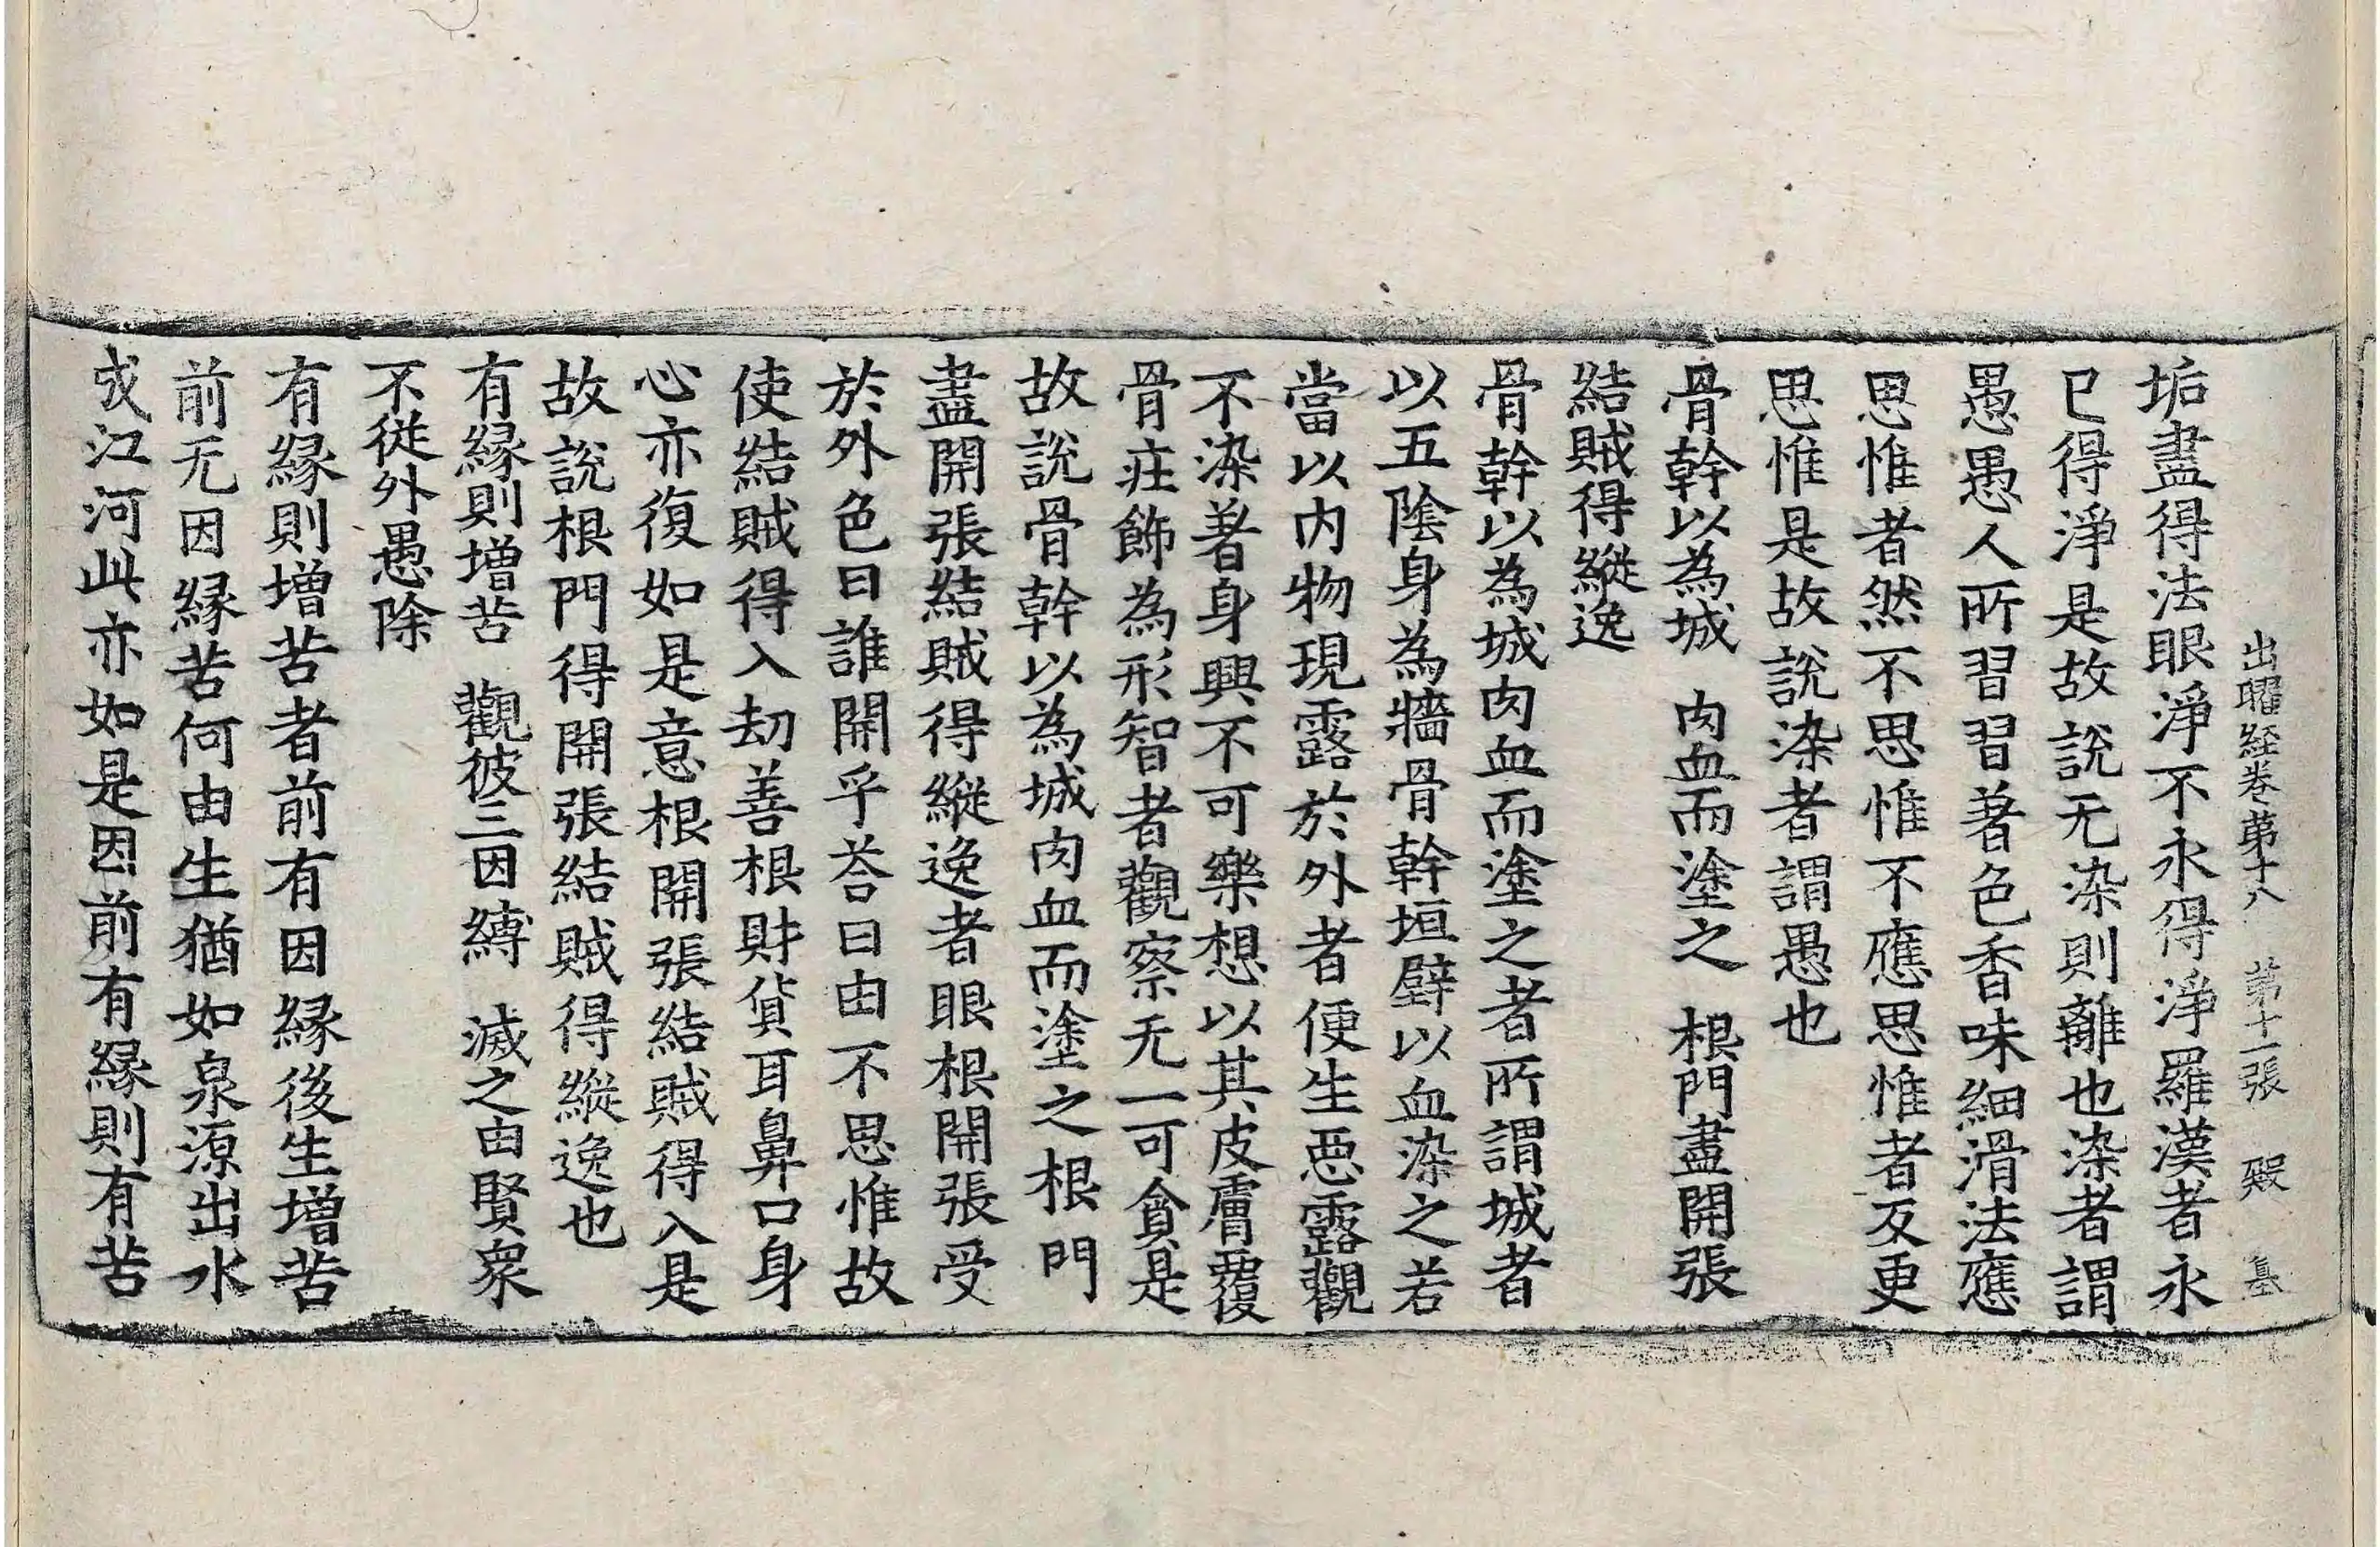 出曜経卷第十八 第十一張 殿
垢盡得法眼淨不永得淨羅漢者永
已得淨是故説无染則離也染者謂
愚愚人所習習著色香味細滑法應
思惟者然不思惟不應思惟者反更
思惟是故説染者謂愚也
骨幹以為城 肉血而塗之 根門盡開張
結賊得縱逸
骨幹以為城肉血而塗之者所謂城者
以五陰身為牆骨幹垣壁以血染之若
當以内物現露於外者便生惡露觀
不染著身興不可樂想以其皮膚覆
骨莊飾為形智者觀察无一可貪是
故説骨幹以為城肉血而塗之根門
盡開張結賊得縱逸者眼根開張受
於外色曰誰開乎荅曰由不思惟故
使結賊得入劫善根財貨耳鼻口身
心亦復如是意根開張結賊得入是
故説根門得開張結賊得縱逸也
有縁則增苦 觀彼三因縛 滅之由賢衆
不從外愚除
有縁則增苦者前有因縁後生增苦
前无因縁苦何由生猶如泉源出水
成江河此亦如是因前有縁則有苦